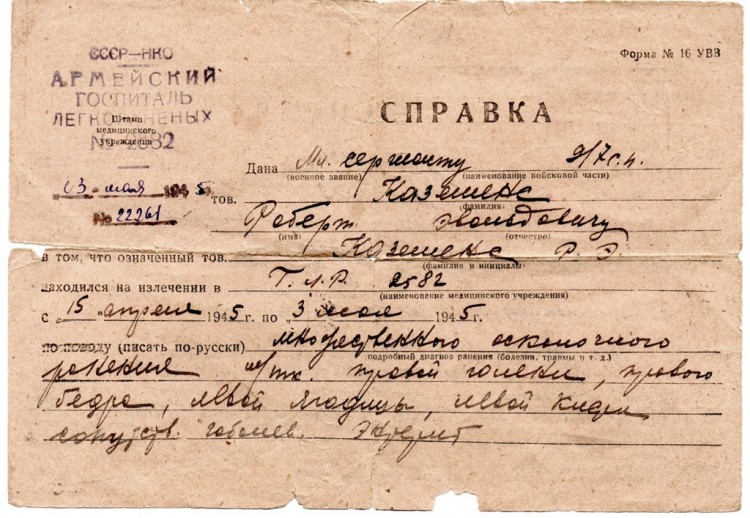 СССР—НКО
АРМЕЙСКИЙ
ГОСПИТАЛЬ
ЛЕГКОРАНЕНЫХ
№ 2582
Штамп
медицинского
учреждения
03 мая 1945
№ 22261
Форма № 16 УВВ
СПРАВКА
Дана Мл. сержанту 917 с.п.
(военное звание) (наименование войсковой части)
тов. Каземекс
(фамилия)
Роберт Эвольдовичу
(имя) (отчество)
в том, что означенный тов. Каземекс Р. Э.
(фамилия и инициалы)
находился на излечении в Г.Л.Р. 2582
(наименование медицинского учреждения)
с „15 „ апреля 1945 г. по 3 мая 1945 г.
по поводу (писать по-русски) множественного осколочного
подробный диагноз ранения (болезни, травмы и т. д.)
ранения м/тк. правой голени, правого
бедра, левой ягодицы, левой кисти
сопутств. заболев.